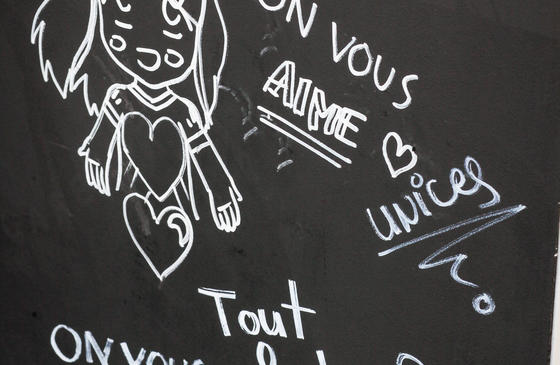 ON VOUS
AIME
unices
Tout
ON VOUS